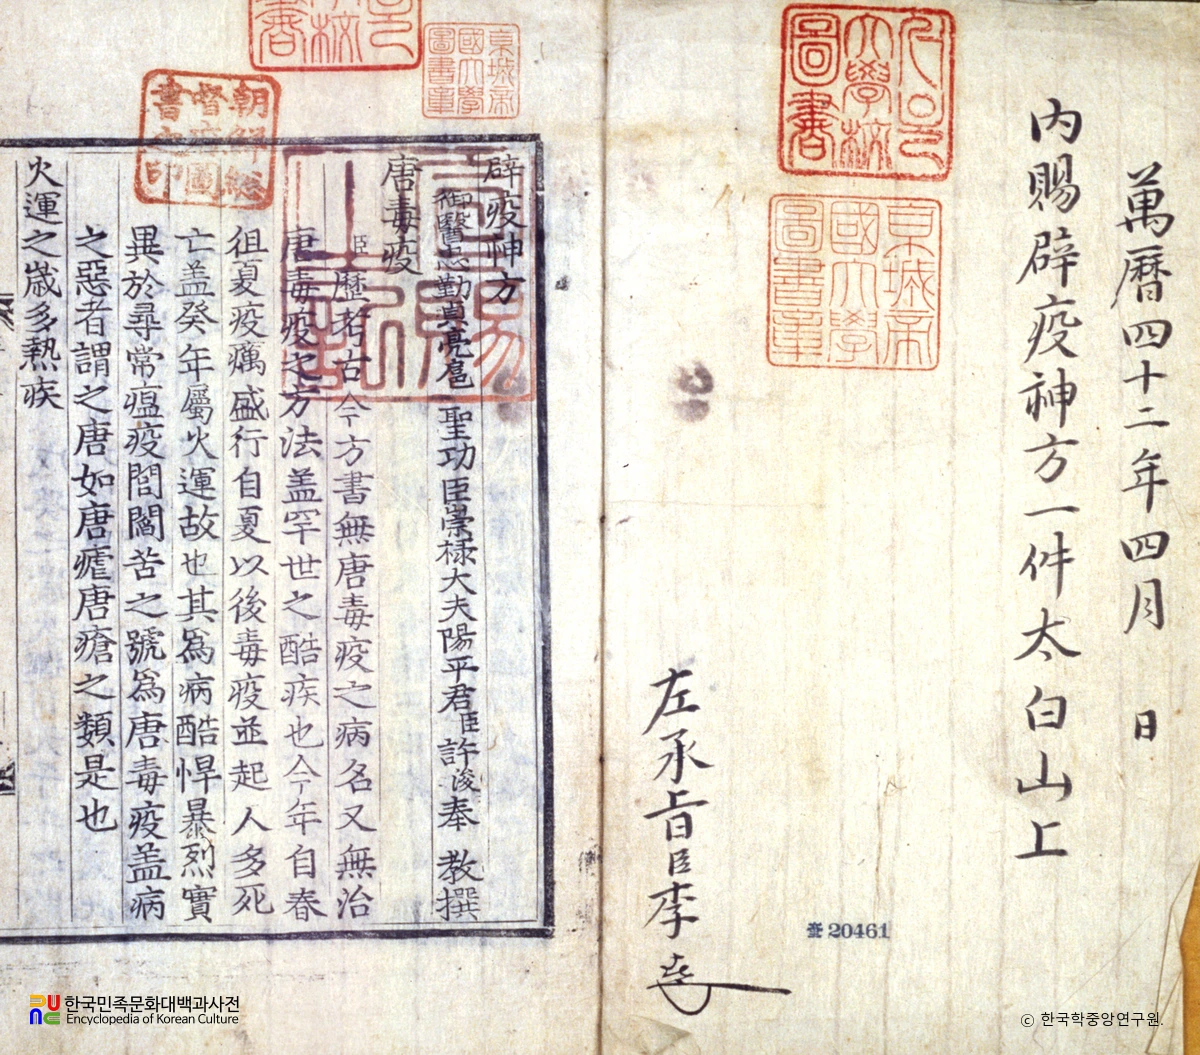 萬曆四十二年四月 日
內賜辟疫神方一件太白山上
左承旨臣李
壹 20461
京城帝國大學圖書章
辟疫神方
御醫忠勤貞亮扈聖功臣崇祿大夫陽平君臣許浚奉 教撰
唐毒疫
臣歷考古今方書無唐毒疫之病名又無治
唐毒疫之方法盖罕世之酷疾也今年自春
徂夏疫癘盛行自夏以後毒疫並起人多死
亡盖癸年屬火運故也其為病酷悍暴烈實
異於尋常瘟疫閭閻苦之號為唐毒疫盖病
之惡者謂之唐如唐瘧唐瘡之類是也
火運之歲多熱疾
京城帝國大學圖書章
朝鮮總督府圖書之印
한국민족문화대백과사전
Encyclopedia of Korean Culture
ⓒ 한국학중앙연구원.